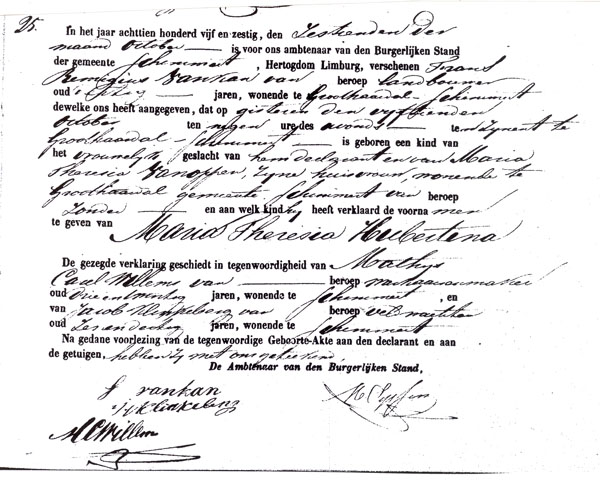 25.
In het jaar achttien honderd vijf en zestig, den Zestienden der
maand October is voor ons ambtenaar van den Burgerlijken Stand
der gemeente Schimmert, Hertogdom Limburg, verschenen Frans
Remigius Vankan van beroep Landbouwer
oud jaren, wonende te Groothaasdal Schimmert
dewelke ons heeft aangegeven, dat op gisteren den vijftienden
October ten negen ure des avonds ten zynent te
Groothaasdal Schimmert is geboren een kind van
het vrouwelyk geslacht van hem declarant en van Maria
Theresia Vanoppen, zyne huisvrouw, wonende te
Groothaasdal gemeente Schimmert van beroep
Zonder en aan welk kind hy heeft verklaard de voorna men
te geven van Maria Theresia Hubertena
De gezegde verklaring geschiedt in tegenwoordigheid van Mathys
Carel Willems van beroep
oud Drie en jaren, wonende te Schimmert, en
van Jacob Klinkeberg van beroep veldwachter
oud Zes en dertig jaren, wonende te Schimmert
Na gedane voorlezing van de tegenwoordige Geboorte-Akte aan den declarant en aan
de getuigen, hebben zy met ons geteekend.
De Ambtenaar van den Burgerlijken Stand,
f vankan
j k klinkeberg
M C Willem